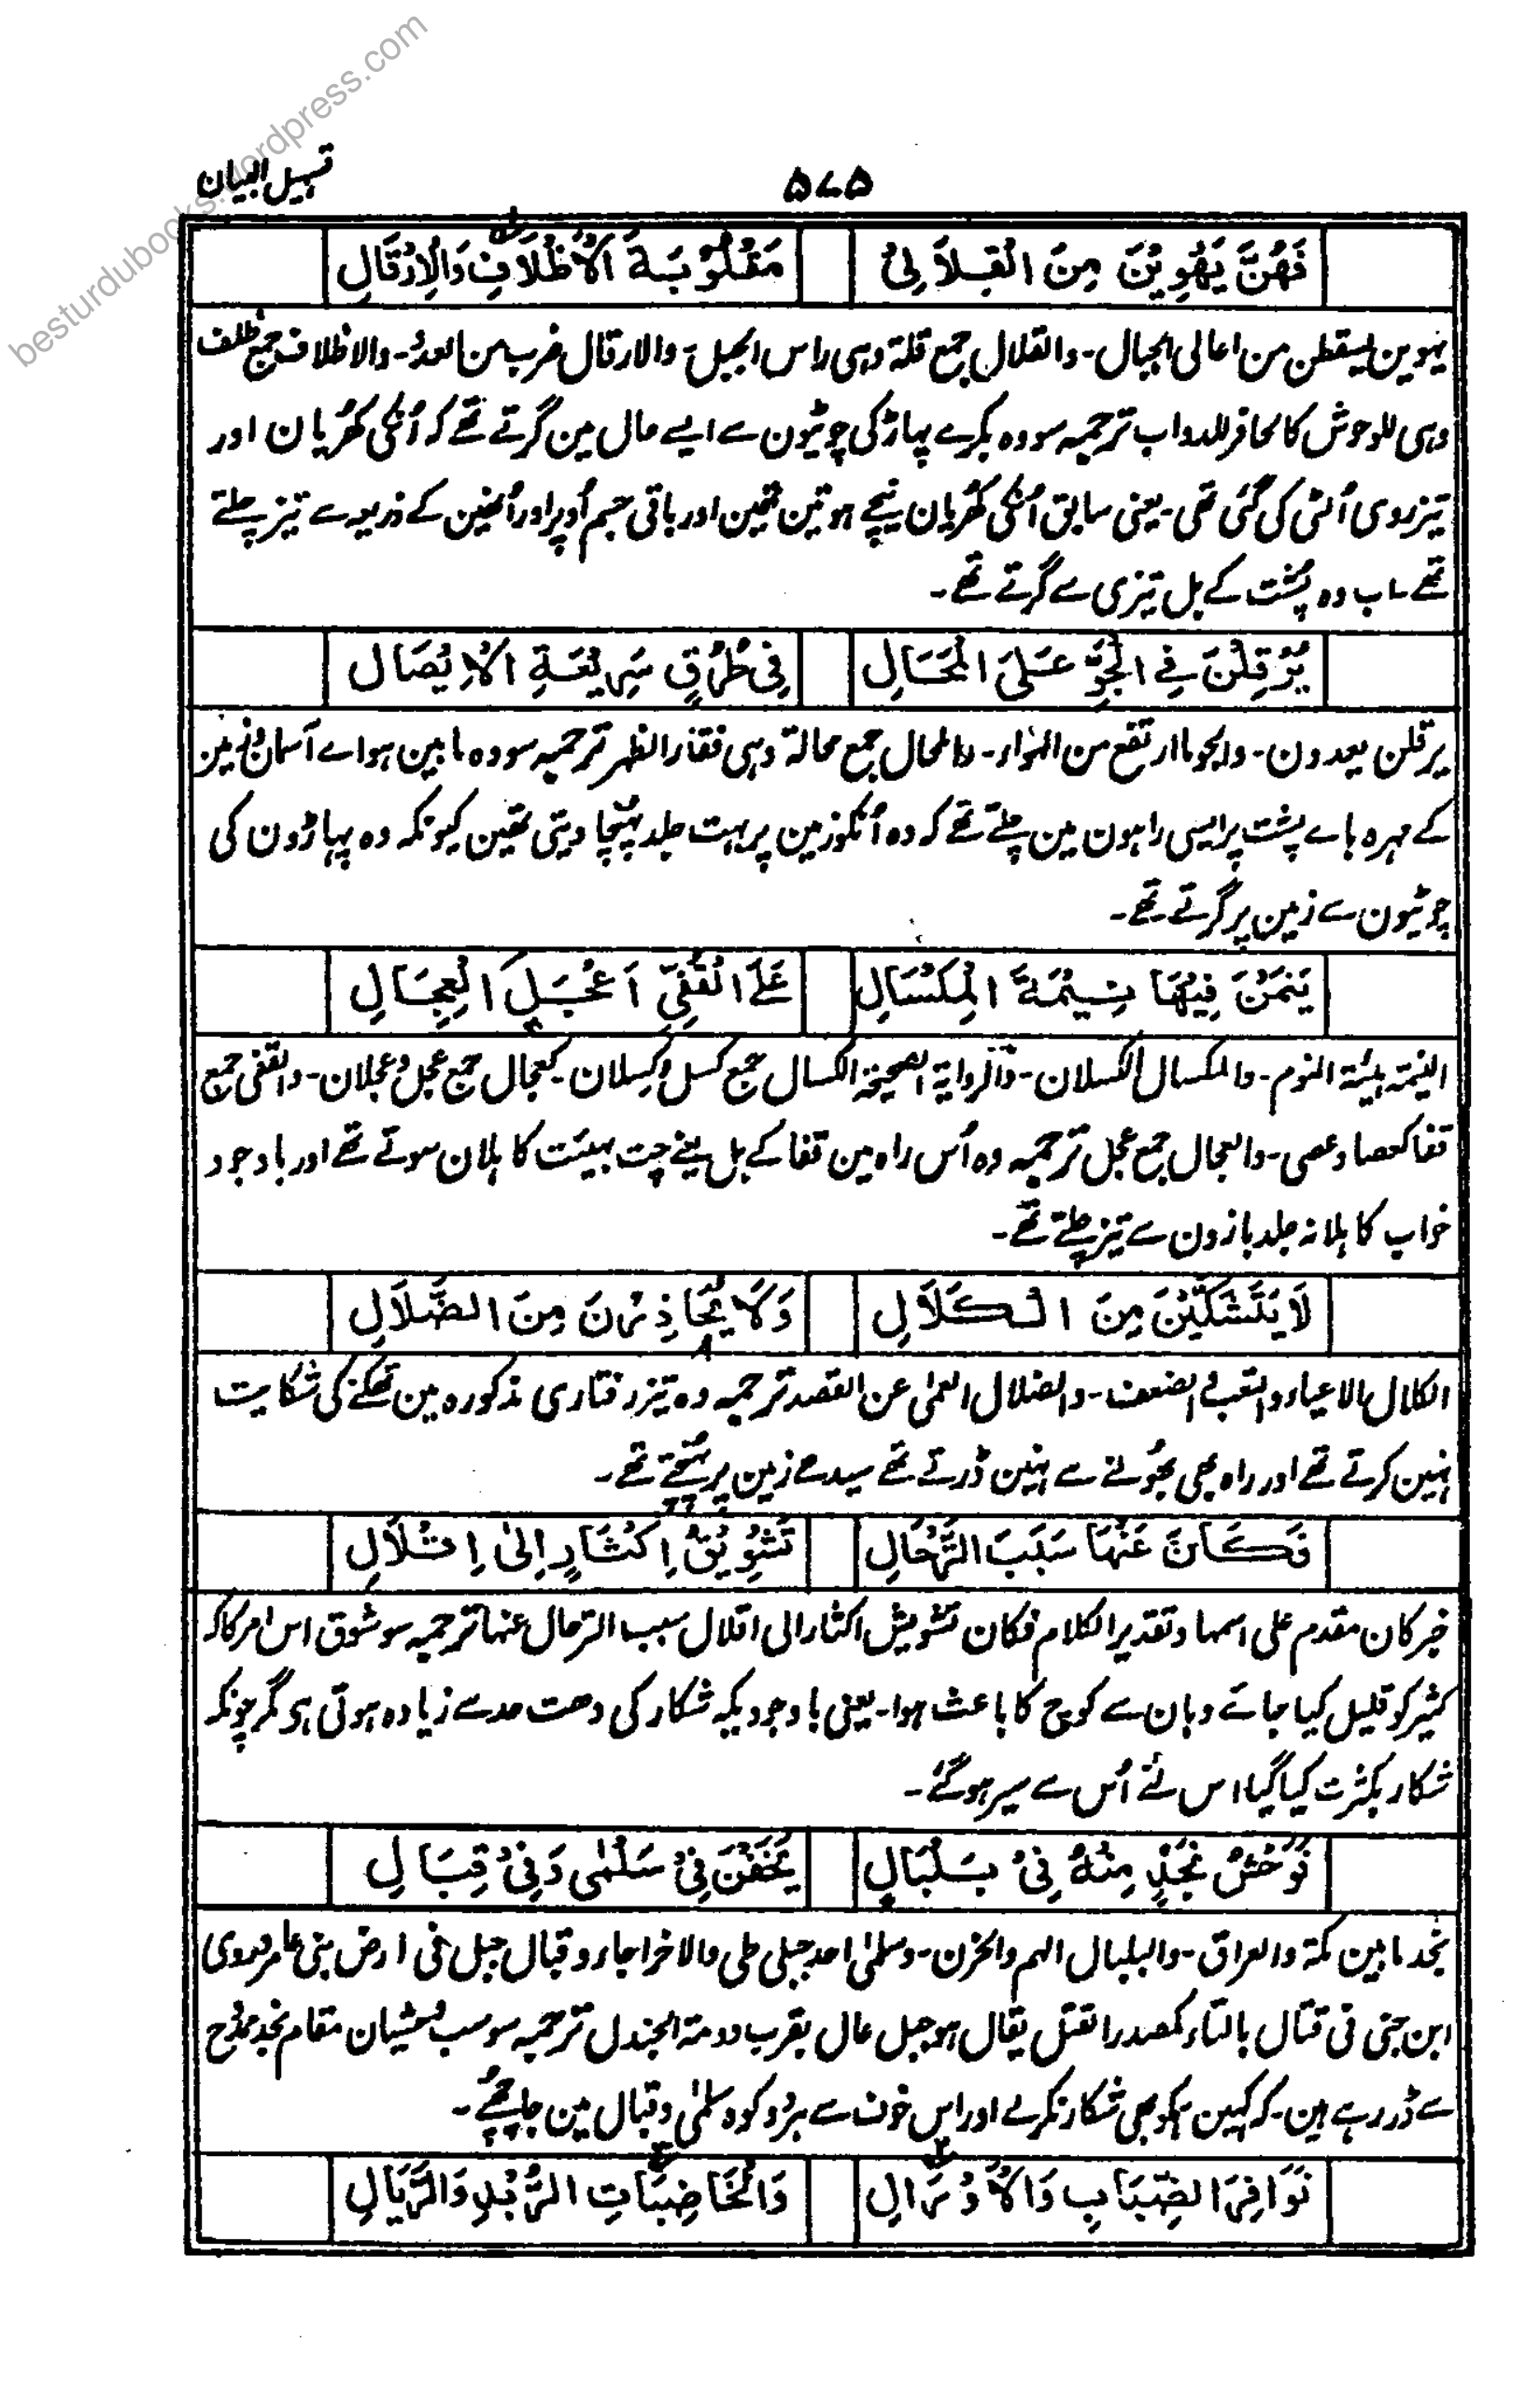 besturdubooks.wordpress.com
تسہیل البیان
۵۷۵
فَهُنَّ يَهْوِيْنَ مِنَ الْقِلَالِيْ مَقْلُوْبَةَ الْأَظْلَافِ وَالْإِرْقَالِ
یہوین یسقطن من اعالی الجبال۔ والقلال جمع قلۃ وہی راس الجبل۔ والارقال ضرب من العدو۔ والاظلاف جمع ظلف
وہی للوحوش کالحافر للدواب ترجمہ سو وہ بکرے پہاڑ کی چوٹیون سے ایسے حال مین گرتے تھے کہ اُنکی کھُریان اور
تیزروی اُلٹی کی گئی تھی۔ یعنی سابق اُنکی کھُریان نیچے ہوتین تھین اور باقی جسم اُوپر اور اُنھین کے ذریعہ سے تیز چلتے
تھے۔ اب وہ پُشت کے بل تیزی سے گرتے تھے۔
يُرْقِلْنَ فِي الْجَوِّ عَلَى الْمَحَالِ فِيْ طُرُقٍ سَرِيْعَةِ الْإِيْصَالِ
یرقلن یعدون۔ والجو ما ارتفع من الہواء۔ والمحال جمع محالۃ وہی فقار الظہر ترجمہ سو وہ مابین ہوائے آسمان وزمین
کے مہرہ ہاے پشت پر ایسی راہون مین چلتے تھے کہ وہ اُنکو زمین پر بہت جلد پہنچا دیتی تھین کیونکہ وہ پہاڑون کی
چوٹیون سے زمین پر گرتے تھے۔
يَنَمْنَ فِيْهَا نِيْمَةَ الْمِكْسَالِ عَلَى الْقُفِيِّ اَعْجَلَ الْعِجَالِ
النیمۃ ہیئۃ النوم۔ والمکسال الکسلان۔ والروایۃ الصحیحۃ الکسال جمع کسل وکسلان۔ کعجال جمع عجل وعجلان۔ والقفی جمع
قفا کعصا وعصی۔ والعجال جمع عجل ترجمہ وہ اُس راہ مین قفا کے بل یعنے چت بہیئت کاہلان سوتے تھے اور باوجود
خواب کاہلانہ جلد بازون سے تیز چلتے تھے۔
لَا يَتَشَكَّيْنَ مِنَ الْكَلَالِ وَلَا يُحَاذِرْنَ مِنَ الضَّلَالِ
الکلال الاعیاء والتعب والضعف۔ والضلال العمی عن القصد ترجمہ وہ تیز رفتاری مذکورہ مین تھکنے کی شکایت
نہین کرتے تھے اور راہ بھی بھُولنے سے نہین ڈرتے تھے سیدھے زمین پر پہنچتے تھے۔
فَكَانَ عَنْهَا سَبَبَ التَّرْحَالِ تَشْوِيْقُ اِكْثَارٍ اِلٰى اِقْلَالِ
خبر کان مقدم علی اسمہا وتقدیر الکلام فکان تشویش اکثار الی اقلال سبب الترحال عنہا ترجمہ سو شوق اس امر کا کہ
کثیر کو قلیل کیا جائے وہان سے کوچ کا باعث ہوا۔ یعنی باوجودیکہ شکار کی حد سے زیادہ ہوتی ہی مگر چونکہ
شکار بکثرت کیا گیا اس لئے اُس سے سیر ہوگئے۔
فَوَحْشُ نَجْدٍ مِنْهُ فِيْ بَلْبَالٍ يَخَفْنَ فِيْ سَلْمٰى وَفِيْ قِبَالِ
نجد مابین مکۃ والعراق۔ والبلبال الہم والحزن۔ وسلمیٰ احد جبلی طی والآخر اجاء وقبال جبل فی ارض بنی عامر وروی
ابن جنی فی قتال بالتاء کمصدر القتل یقال ہو جبل عال بقرب دومۃ الجندل ترجمہ سو سب وحشیان مقام نجد ممدوح
سے ڈر رہے ہین۔ کہ کہین ہمکو بھی شکار نکرلے اور اس خوف سے ہر دو کوہ سلمیٰ وقبال مین جا چھپے۔
نَوَافِرَ الضِّبَابِ وَالْأَوْرَالِ وَالْخَاضِبَاتِ الرُّبْدِ وَالرِّيَالِ